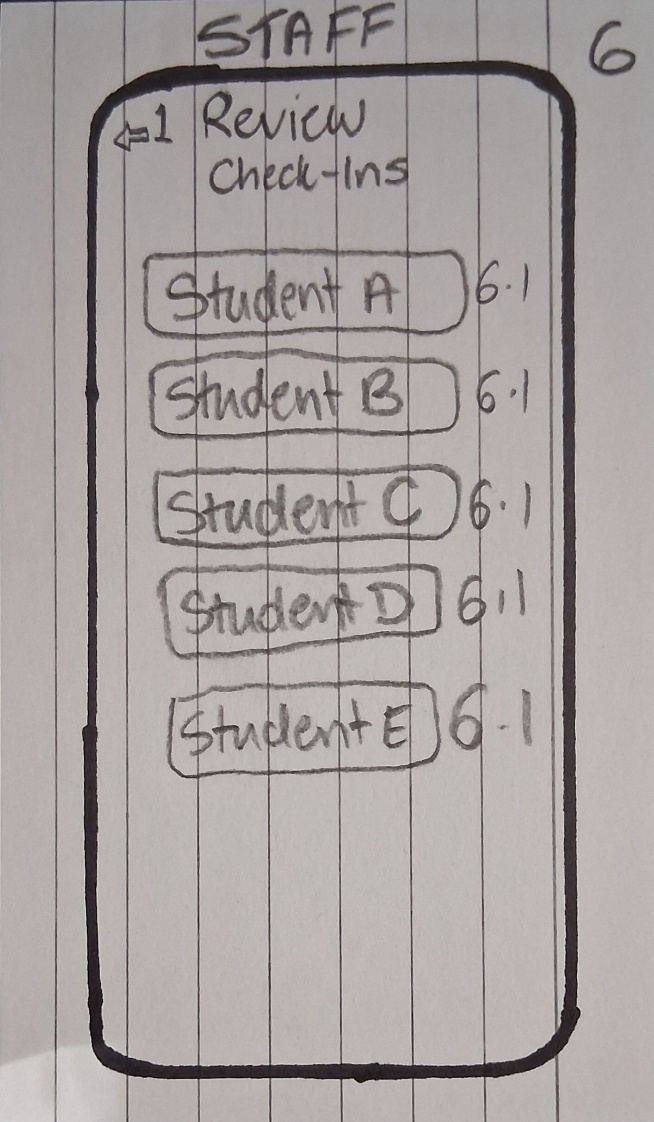 STAFF 6
⇐1 Review
Check-Ins
Student A 6.1
Student B 6.1
Student C 6.1
Student D 6.1
Student E 6.1